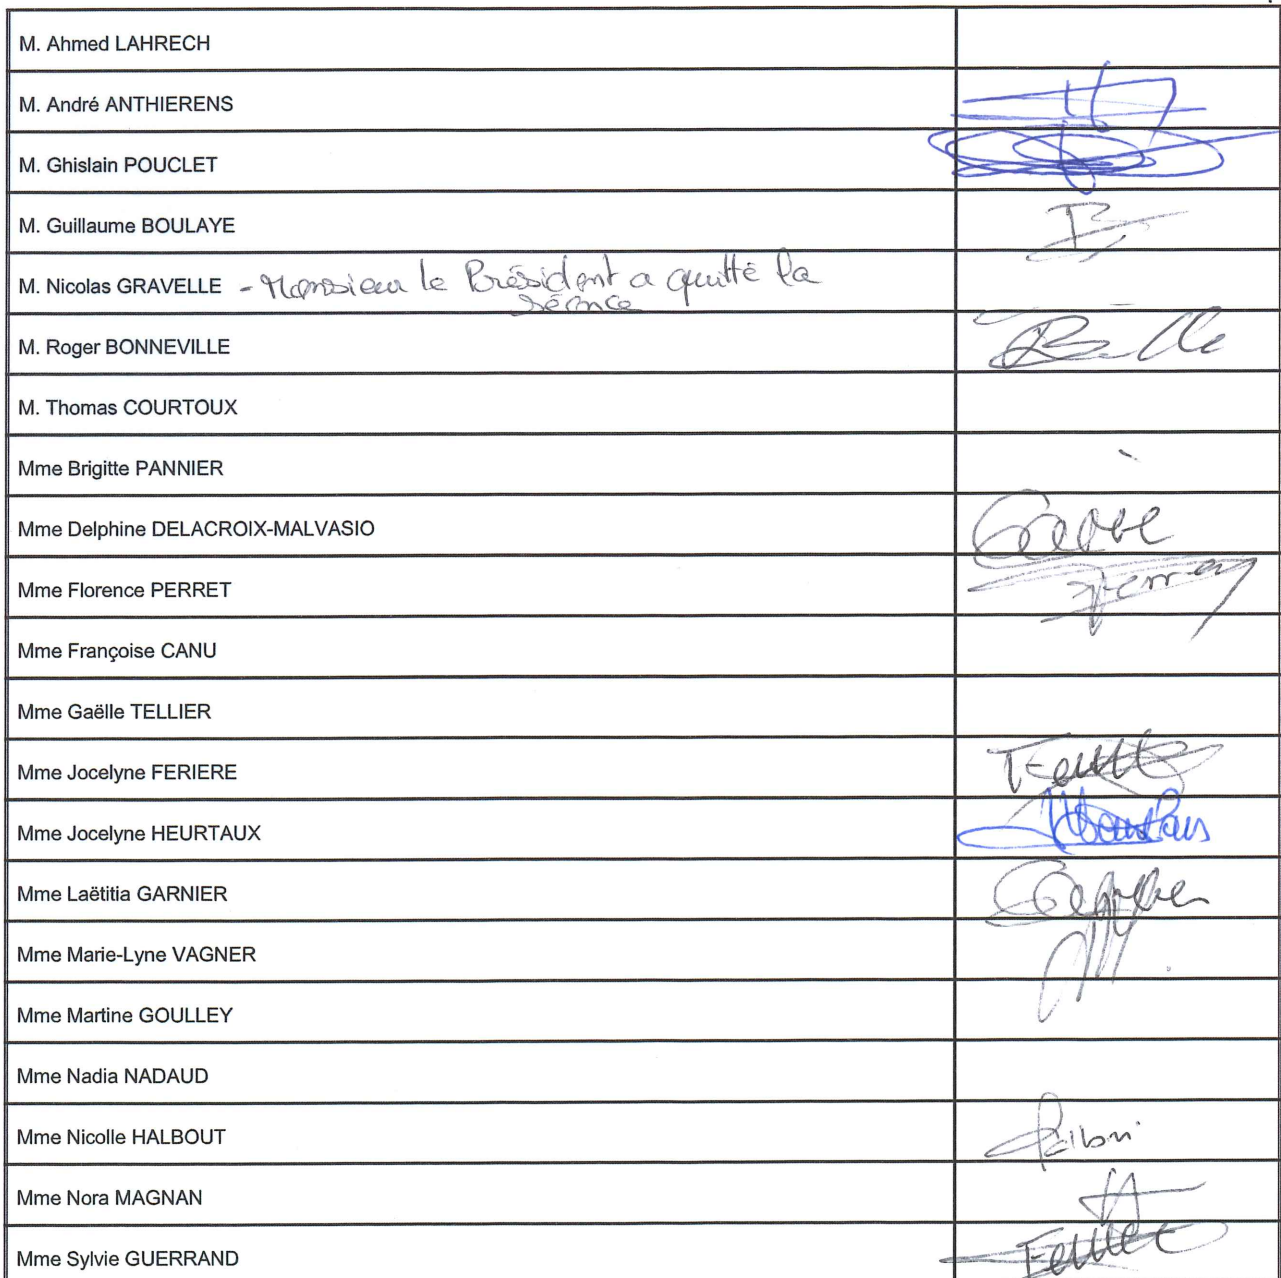 M. Ahmed LAHRECH
M. André ANTHIERENS
M. Ghislain POUCLET
M. Guillaume BOULAYE
M. Nicolas GRAVELLE - Monsieur le Président a quitté la
séance
M. Roger BONNEVILLE
M. Thomas COURTOUX
Mme Brigitte PANNIER
Mme Delphine DELACROIX-MALVASIO
Mme Florence PERRET
Mme Françoise CANU
Mme Gaëlle TELLIER
Mme Jocelyne FERIERE
Mme Jocelyne HEURTAUX
Mme Laëtitia GARNIER
Mme Marie-Lyne VAGNER
Mme Martine GOULLEY
Mme Nadia NADAUD
Mme Nicolle HALBOUT
Mme Nora MAGNAN
Mme Sylvie GUERRAND